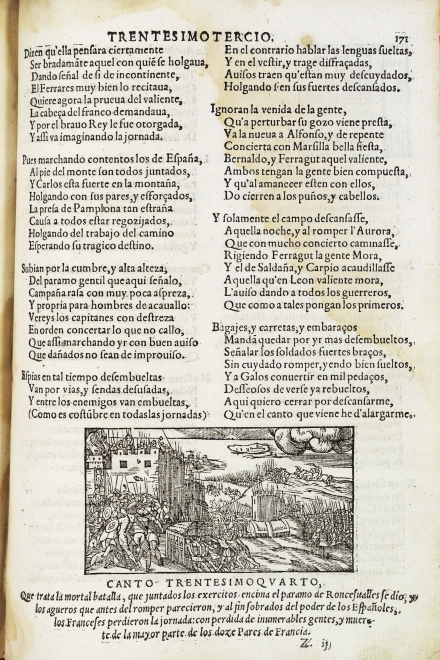 TRENTESIMOTERCIO. 171
Dizen qu'ella pensara ciertamente
Ser bradamãte aquel con quiẽ se holgaua,
Dando señal de si de incontinente,
El Ferrares muy bien lo recitaua,
Quiere agora la prueua del valiente,
La cabeça del franco demandaua,
Y por el brauo Rey le fue otorgada,
Y assi va imaginando la jornada.
Pues marchando contentos los de España,
Al pie del monte son todos juntados,
Y Carlos esta fuerte en la montaña,
Holgando con sus pares, y esforçados,
La presa de Pamplona tan estraña
Causa a todos estar regozijados,
Holgando del trabajo del camino
Esperando su tragico destino.
Subian por la cumbre, y alta alteza,
Del paramo gentil que aqui señalo,
Campaña rasa con muy poca aspreza,
Y propria para hombres de acauallo:
Vereys los capitanes con destreza
En orden concertar lo que no callo,
Que assi marchando yr con buen auiso
Que dañados no sean de improuiso.
Espias en tal tiempo desembueltas
Van por vias, y sendas desusadas,
Y entre los enemigos van embueltas,
(Como es costũbre en todas las jornadas)
En el contrario hablar las lenguas sueltas,
Y en el vestir, y trage disfraçadas,
Auisos traen qu'estan muy descuydados,
Holgando s'en sus fuertes descansados.
Ignoran la venida de la gente,
Qu'a perturbar su gozo viene presta,
Va la nueua a Alfonso, y de repente
Concierta con Marsilla bella fiesta,
Bernaldo, y Ferragut aquel valiente,
Ambos tengan la gente bien compuesta,
Y qu'al amanecer esten con ellos,
Do cierren a los puños, y cabellos.
Y solamente el campo descansasse,
Aquella noche, y al romper l'Aurora,
Que con mucho concierto caminasse,
Rigiendo Ferragut la gente Mora,
Y el de Saldaña, y Carpio acaudillasse
Aquella qu'en Leon valiente mora,
L'auiso dando a todos los guerreros,
Que como a tales pongan los primeros.
Bagajes, y carretas, y embaraços
Manda quedar por yr mas desembueltos,
Señalar los soldados fuertes braços,
Sin cuydado romper, yendo bien sueltos,
Y a Galos conuertir en mil pedaços,
Desseosos de verse ya rebueltos,
Aqui quiero cerrar por descansarme,
Qu'en el canto que viene he d'alargarme.
CANTO TRENTESIMOQVARTO,
Que trata la mortal batalla, que juntados los exercitos encima el paramo de Roncesualles se dio, y
los agueros que antes del romper parecieron, y al fin sobrados del poder de los Españoles,
los Franceses perdieron la jornada: con perdida de inumerables gentes, y muer-
te de la mayor parte de los doze Pares de Francia.
Z iij